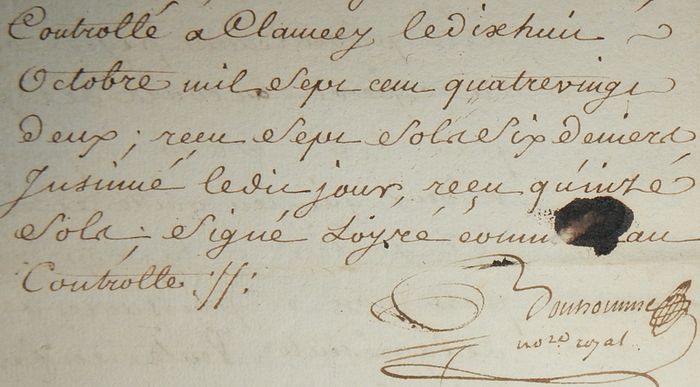 Controllé a Clamecy le dix huit
Octobre mil sept cent quatrevingt
deux; recu sept sols six deniers
Insinué ledit jour, reçu quinze
sols; signé comm au
Controlle ://:
Bonhomme
no.re royal